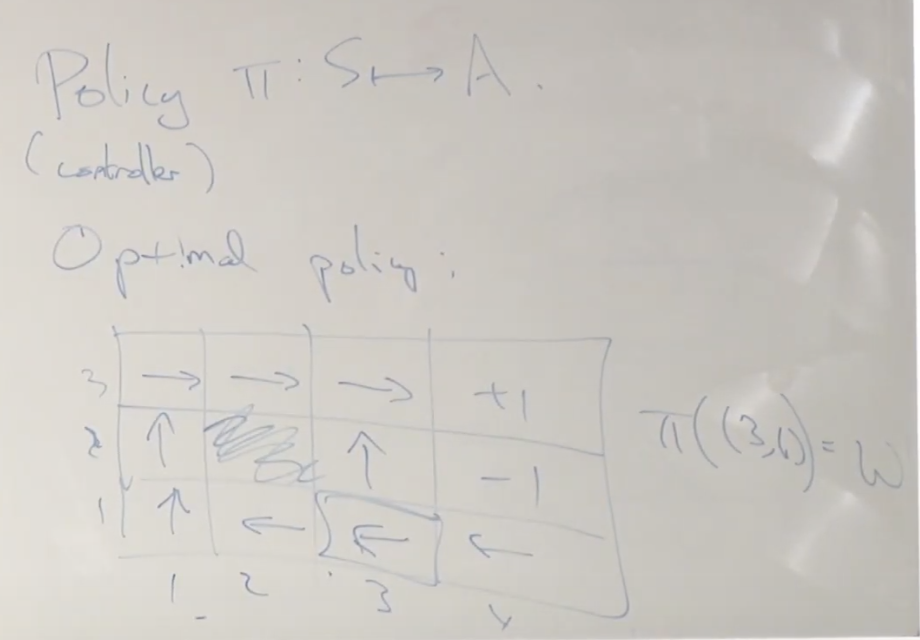 Policy π: S ↦ A.
(controller)
Optimal policy:
3 → → → +1
2 ↑ ↑ -1
1 ↑ ← ← ←
π((3,1)) = W
1 2 3 4